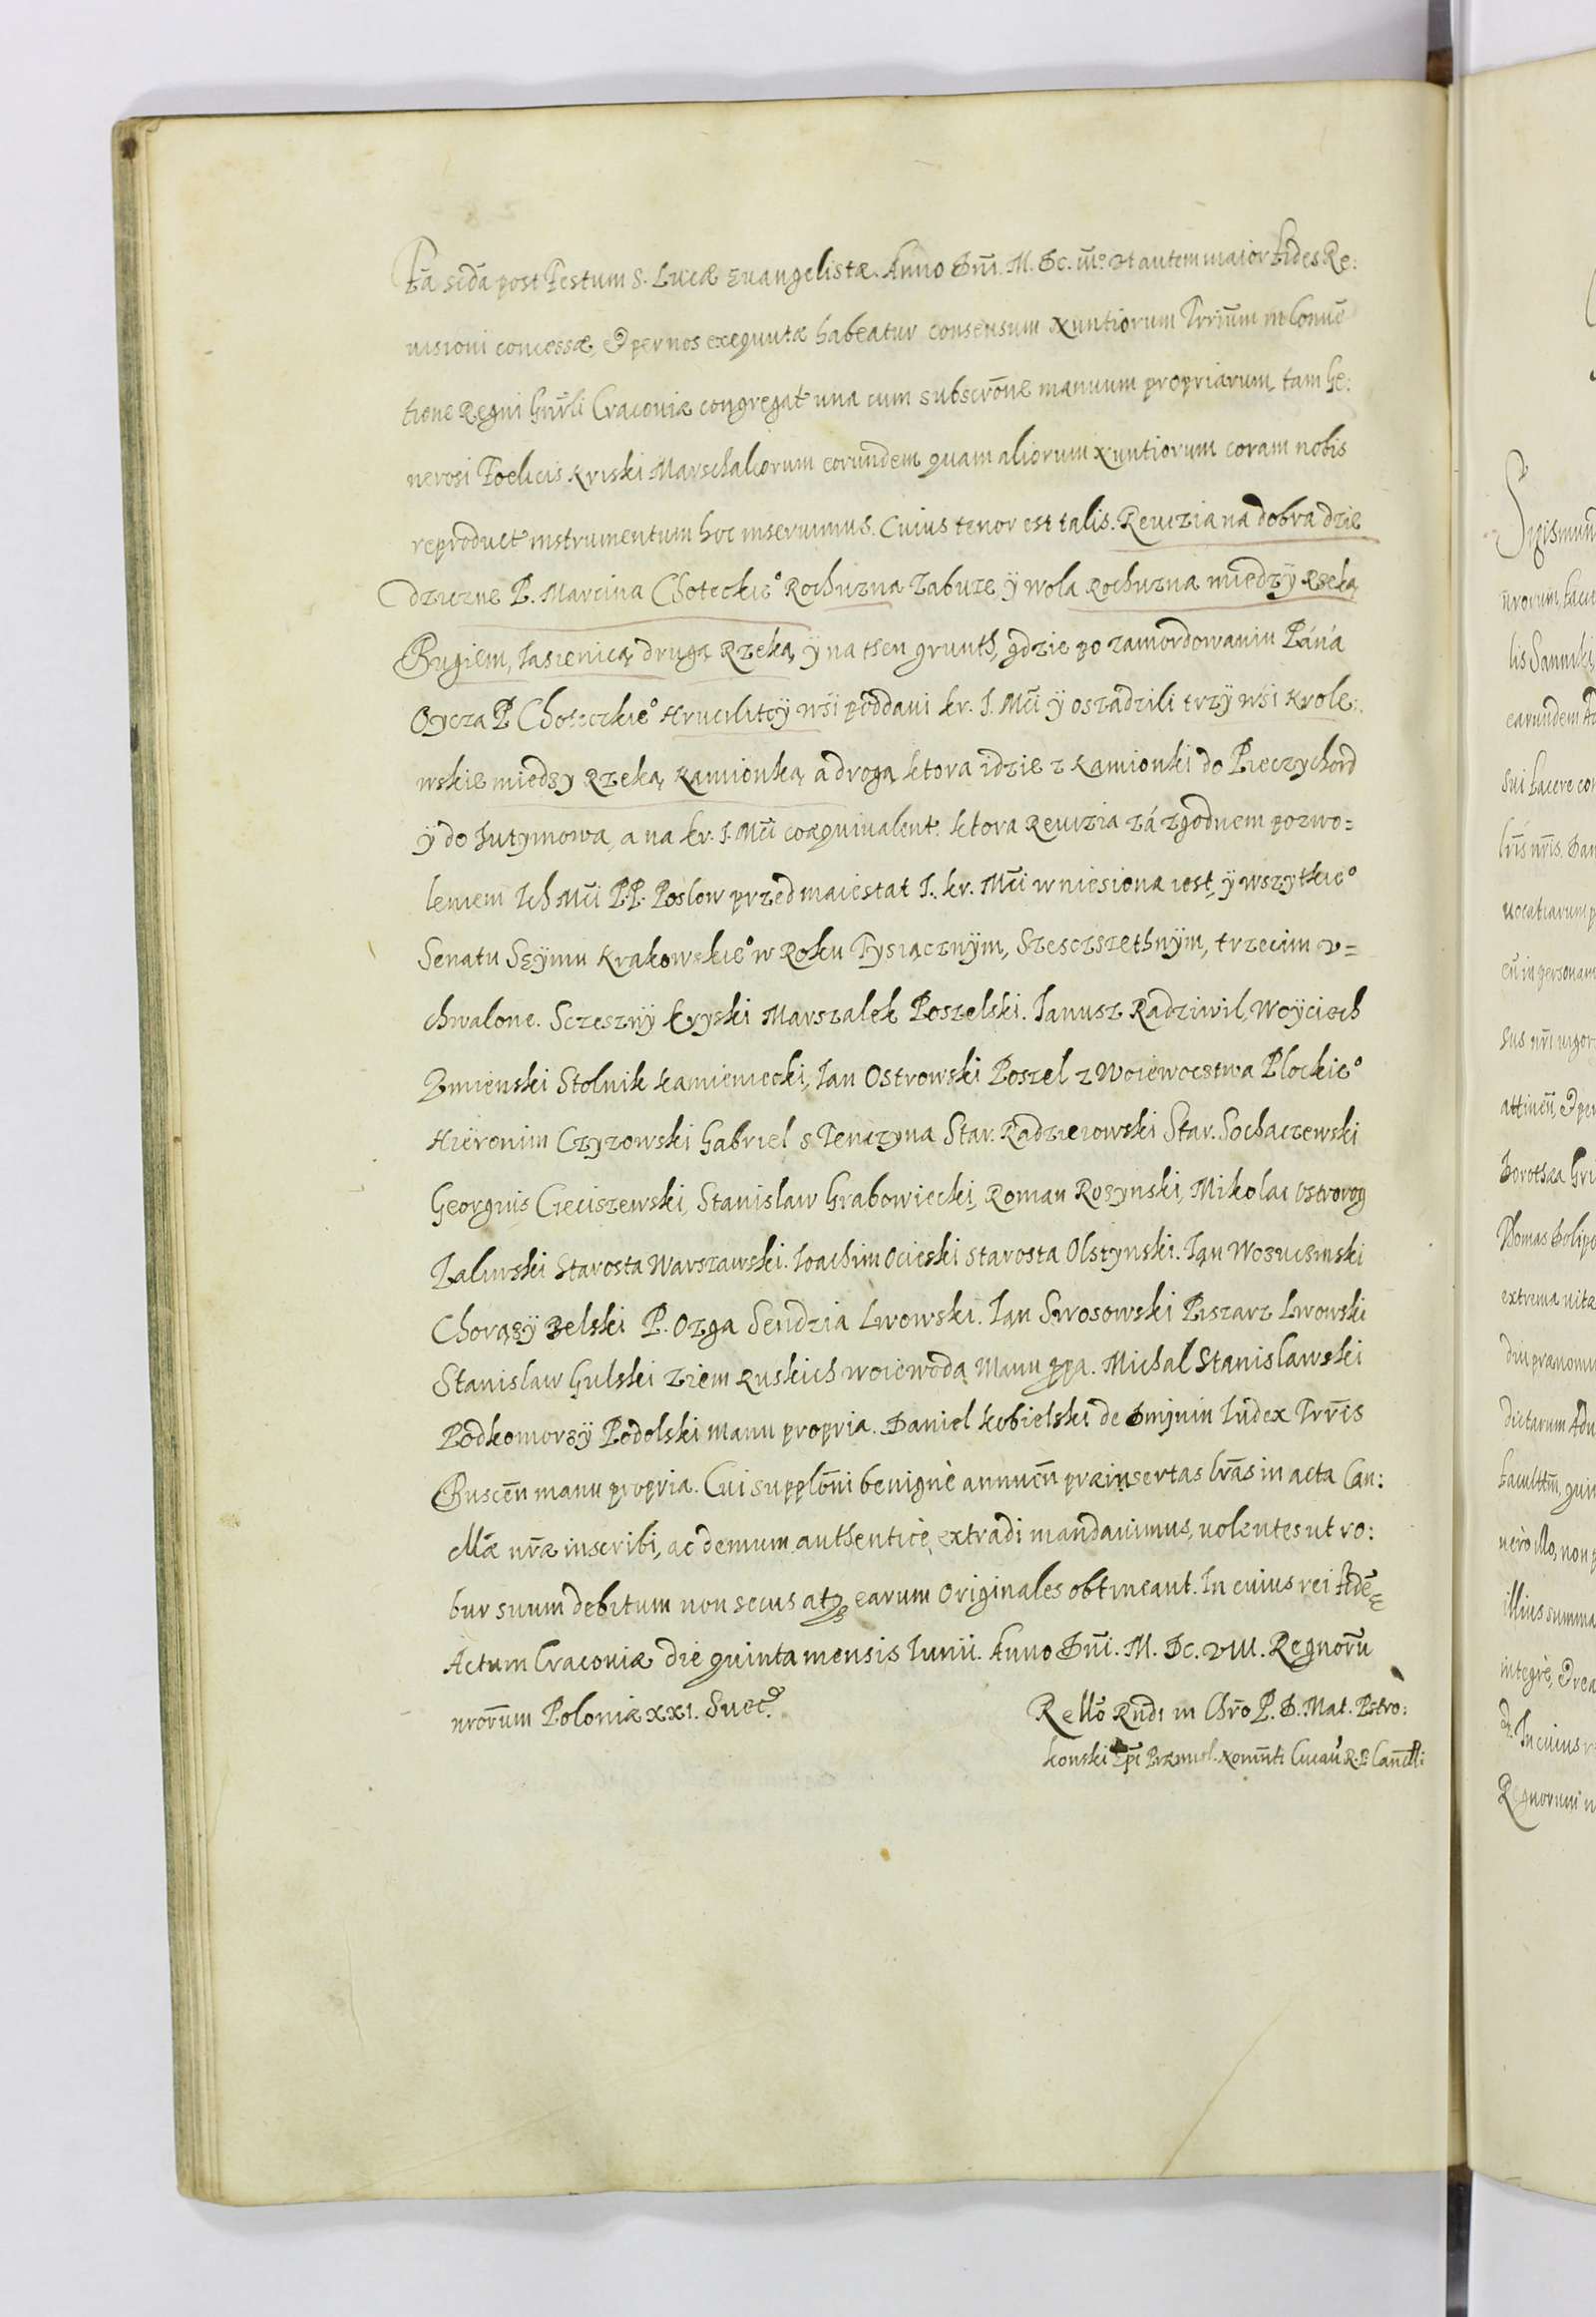 Fa scda post Festum S. Lucæ Evangelistæ. Anno Dni. M. Dc. iii.º Ut autem maior fides Re:
uisioni concessæ, & per nos exequutæ habeatur consensum Nuntiorum Trrium in Conue
tione Regni Gnrli Cracouiæ congregat una cum subscrone manuum propriarum, tam Ge:
nerosi Foelicis Kriski Marschaliorum eorundem quam aliorum Nuntiorum coram nobis
reproduct instrumentum hoc inseruimus. Cuius tenor est talis. Reuizia na dobra dzie
dziczne P. Marcina Choteckieº Rochuzna Zabuze ÿ wola Rochuzna międzÿ Rzeką
Bugiem, Iasienicą drugą Rzeką, ÿ na then grunth, gdzie po zamordowaniu Páná
Oycza P Choteczkieº Hruciliteÿ wsi poddani kr. J. Mci ÿ oszadzili trzÿ wsi Krole:
wskie miedzy Rzeką Kamionką a drogą ktora idzie z Kamionki do Pieczychord
ÿ do hutymowa, a na kr. J. Mci coæquiualent. ktora Reuizia zá zgodnem pozwo=
leniem Ich Mci P.P. Poslow przed maiestat J. kr. Mci wniesiona iest, ÿ wszytkieº
Senatu Sęÿmu Krakowskieº w Roku Tysiącznÿm, Szesczszethnÿm, trzecim v=
chwalone. Sczesznÿ Kryski Marszalek Poszelski. Janusz Radziwil, Woÿciech
Zmienski Stolnik Kamieniecki, Ian Ostrowski Poszel z Woiewoestwa Plockieº
Hieronim Czyzowski Gabriel s Tenczyna Star. Radzieiowski Star. Sochaczewski
Georgius Cieciszewski, Stanislaw Grabowiecki, Roman Rozynski, Mikolai Ostrorog
Zaliwski Starosta Warszawski. Ioachim Ocieski starosta Olstynski. Ian Wozuczinski
Chorązÿ Belski P. Ozga Sendzia Lwowski. Ian Swosowski Piszarz Lwowski
Stanislaw Gulski Ziem Ruskich woiewoda Manu ppa. Michal Stanislawski
Podkomorzÿ Podolski manu propria. Daniel Kobielski de Dmijnin Iudex Trris
Buscen manu propria. Cui supploni benignè annuen præinsertas lras in acta Can:
cllæ nræ inscribi, ac demum authenticè extradi mandauimus, uolentes ut ro:
bur suum debitum non secus atq; earum Originales obtineant. In cuius rei fide=
Actum Cracouiæ die quinta mensis Iunii. Anno Dni. M. Dc. VIII. Regnoru
nrorum Poloniæ XXI. Suec.
Rello Rndi in Chro P. D. Mat. Pstro:
konski Epi Præmisl. Nomnti Cuiau R. P. Cancll: